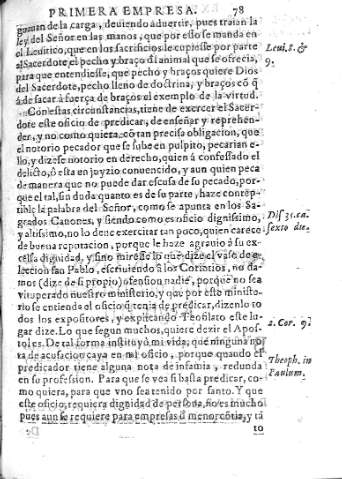 PRIMERA EMPRESA. 78
guauan de la carga, deuiendo aduertir, pues traian la
ley del Señor en las manos, que por esso se manda en
el Leuitico, que en los sacrificios le cupiesse por parte
al Sacerdote el pecho y braço dl animal que se ofrecia,
para que entendiesse, que pecho y braços quiere Dios
del Sacerdote, pecho lleno de doctrina, y braços cō q̃
á de sacar à fuerça de braços el exemplo de la virtud.
Con estas circunstancias, tiene de exercer el Sacer-
dote este oficio de predicar, de enseñar y reprehen-
der, y no como quiera, cō tan precisa obligacion, que
el notorio pecador que se sube en pulpito, pecaria en
ello, y dizese notorio en derecho, quien á confessado el
delicto, ò esta en juyzio conuencido, y aun quien peca
de manera que no puede dar escusa de su pecado, por-
que el tal, sin duda quanto es de su parte, haze contẽp-
tible la palabra del Señor, como se apunta en los Sa-
grados Canones, y siendo como es oficio dignissimo,
y altissimo, no lo deue exercitar tan poco, quien carece
de buena reputacion, porque le haze agrauio â su ex-
celsa dignidad, y sino mirese lo que dize el vaso de e-
leccion san Pablo, escriuiendo â los Corintios, no da-
mos (dize de si propio) ofension à nadie, porque no sea
vituperado nuestro ministerio, y que por este ministe-
rio se entienda el oficio q̃ tenia de predicar, dizenlo to
dos los expositores, y explicando Teofilato este lu-
gar dize. Lo que segun muchos, quiere dezir el Apos-
tol es. De tal forma instituyò mi vida, que ninguna no-
ta de acusacion caya en mi oficio, porque quando el
predicador tiene alguna nota de infamia, redunda
en su profession. Para que se vea si basta predicar, co-
mo quiera, para que vno sea tenido por santo. Y que
este oficio, requiera dignidad de persona, no es mucho
pues aun se requiere para empresas d̃ menor cōtia, y tá
to
Leui. 8. &
9.
Dis. 31. ca.
sexto die.
2. Cor. 9.
Theoph. in
Paulum.